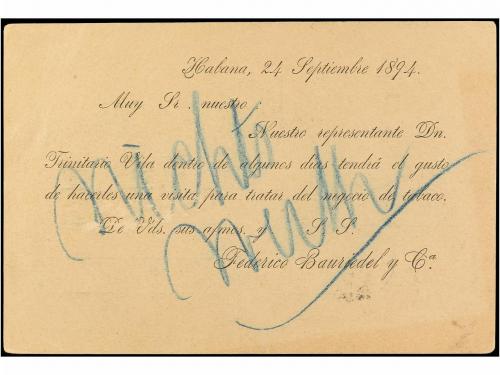 Habana, 24 Septiembre 1894.
Muy Sr. nuestro
Nuestro representante Dn.
Trinitario Vila dentro de algunos dias tendrá el gusto
de hacerles una visita para tratar del negocio de tabaco.
De Vds. sus afmos. y S. S.
Federico Bauriedel y Cª.
nichts